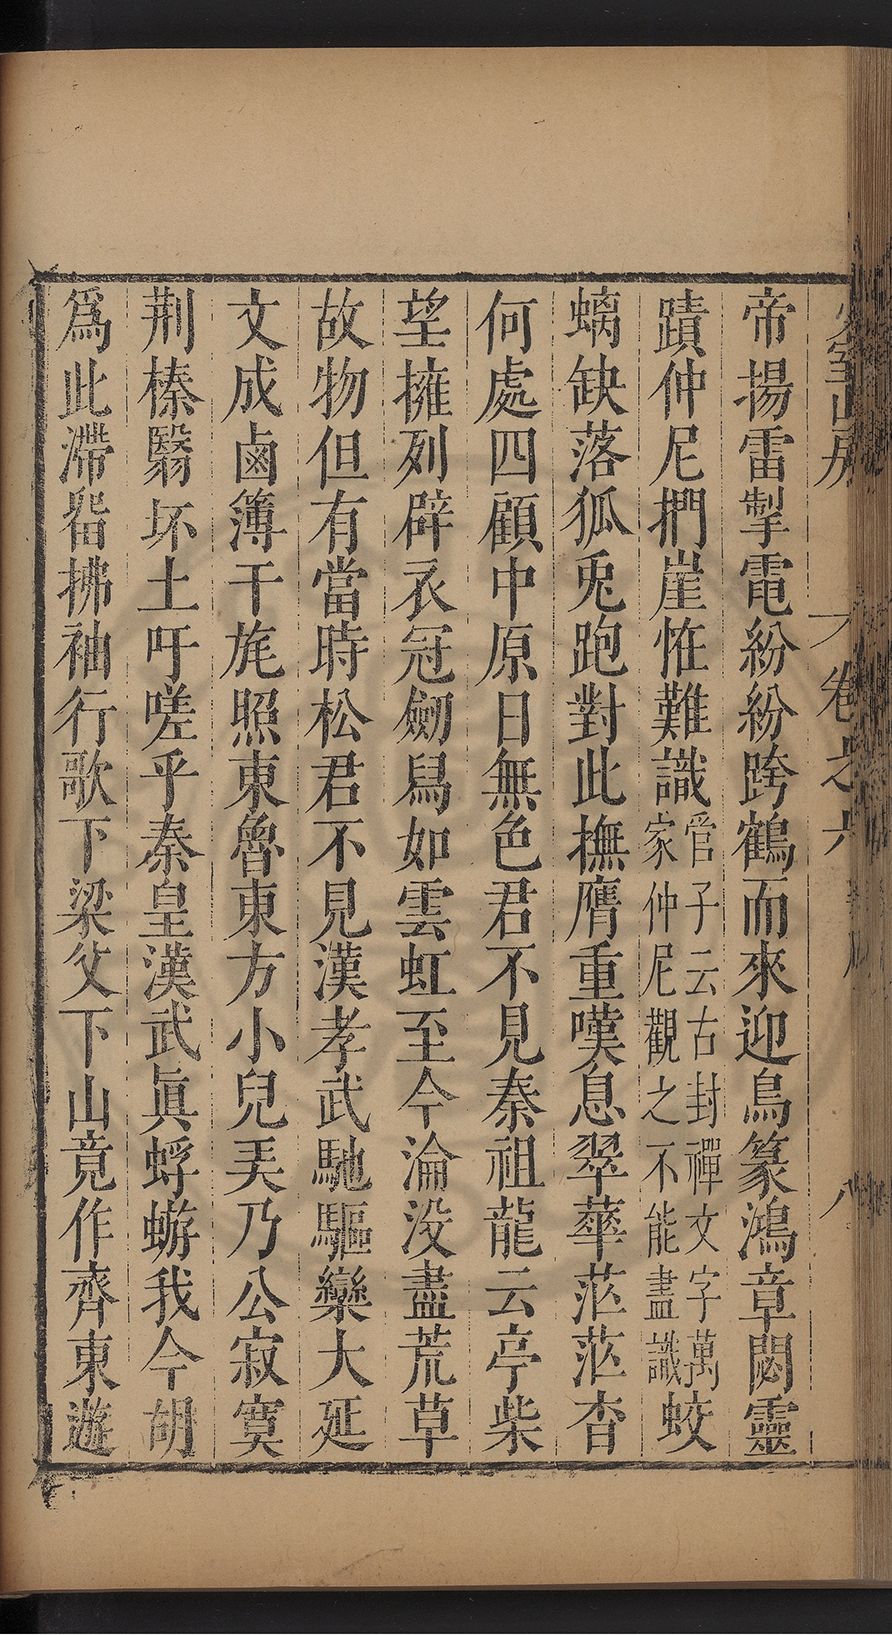 少室山房
卷之六
八
帝揚雷掣電紛紛跨鶴而來迎鳥篆鴻章閟靈
蹟仲尼捫崖恠難識管子云古封禪文字萬家仲尼觀之不能盡識蛟
螭缺落狐兎跑對此撫膺重嘆息翠蕐茫茫杳
何處四顧中原日無色君不見秦祖龍云亭柴
望擁列辟衣冠劒舄如雲虹至今淪没盡荒草
故物但有當時松君不見漢孝武馳驅欒大延
文成鹵簿干旄照東魯東方小兒美乃公寂寞
荆榛翳坏土吁嗟乎秦皇漢武眞蜉蝣我今胡
爲此滯畱拂袖行歌下梁父下山竟作齊東遊